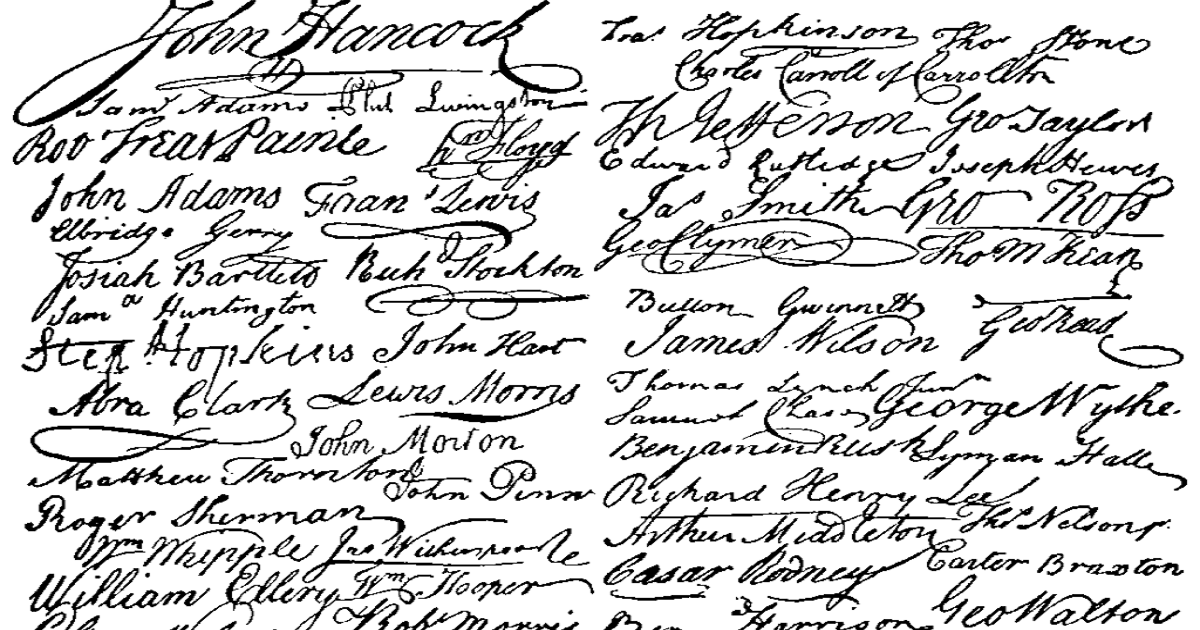 John Hancock
Sam¹ Adams Phil Livingston
Rob Treat Paine Wm Floyd
John Adams Frans Lewis
Elbridge Gerry
Josiah Bartlett Richd Stockton
Samel Huntington
Step Hopkins John Hart
Abra Clark Lewis Morris
John Morton
Matthew Thornton
John Penn
Roger Sherman
Wm Whipple Jno Witherspoon
William Ellery Wm Hooper
Robt Morris
Fras Hopkinson Thos Stone
Charles Carroll of Carrollton
Th Jefferson Geo Taylor
Edward Rutledge Joseph Hewes
Jas Smith Geo Ross
Geo Clymer Tho M Kean
Button Gwinnett
James Wilson Geo Read
Thomas Lynch Junr
Samuel Chase George Wythe
Benjamin Rush Lyman Hall
Richard Henry Lee
Arthur Middleton Thos Nelson jr
Cæsar Rodney Carter Braxton
Ben Harrison Geo Walton